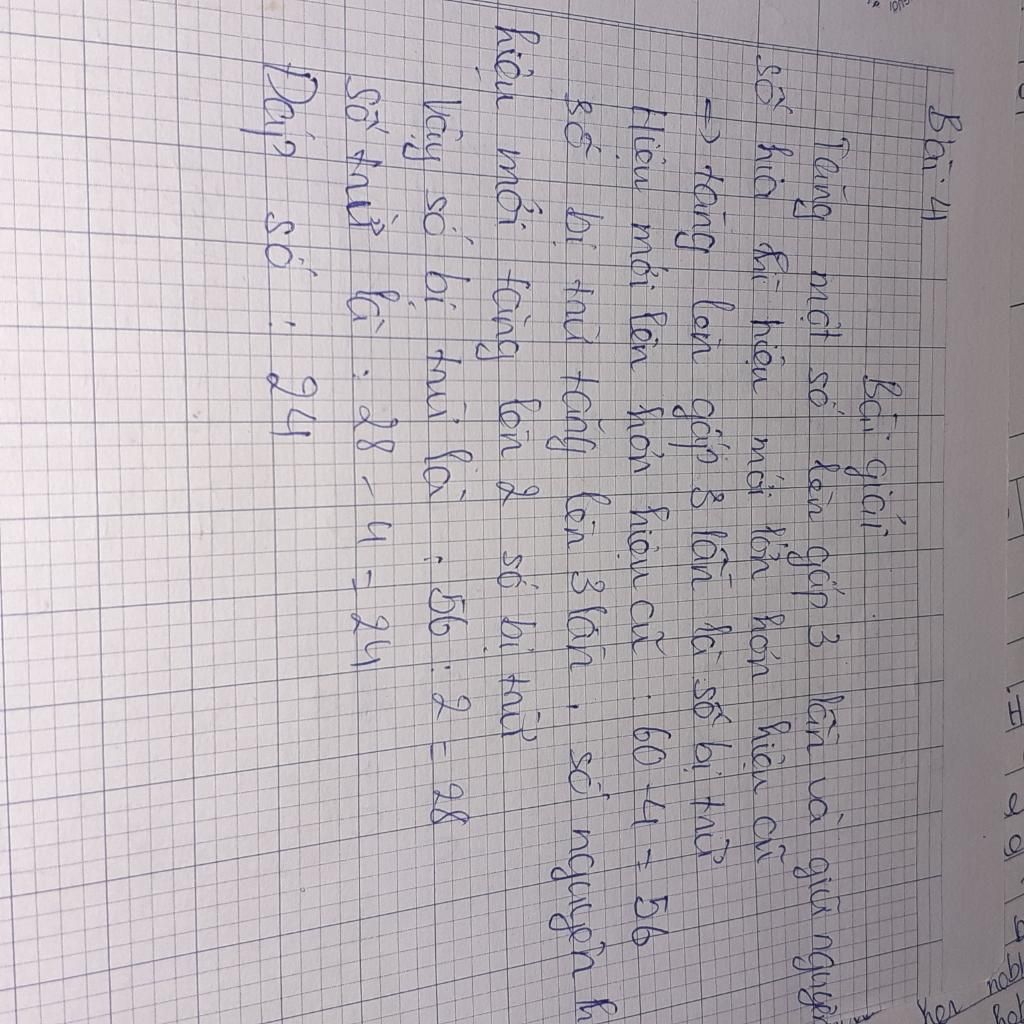 Bài 4
Bài giải
Tăng một số lên gấp 3 lần và giữ nguyên
số kia thì hiệu mới lớn hơn hiệu cũ
→ tăng lên gấp 3 lần là số bị trừ
Hiệu mới lớn hơn hiệu cũ : 60 - 4 = 56
số bị trừ tăng lên 3 lần . số nguyên h
hiệu mới tăng lên 2 số bị trừ
Vậy số bị trừ là : 56 : 2 = 28
Số trừ là : 28 - 4 = 24
Đáp số : 24